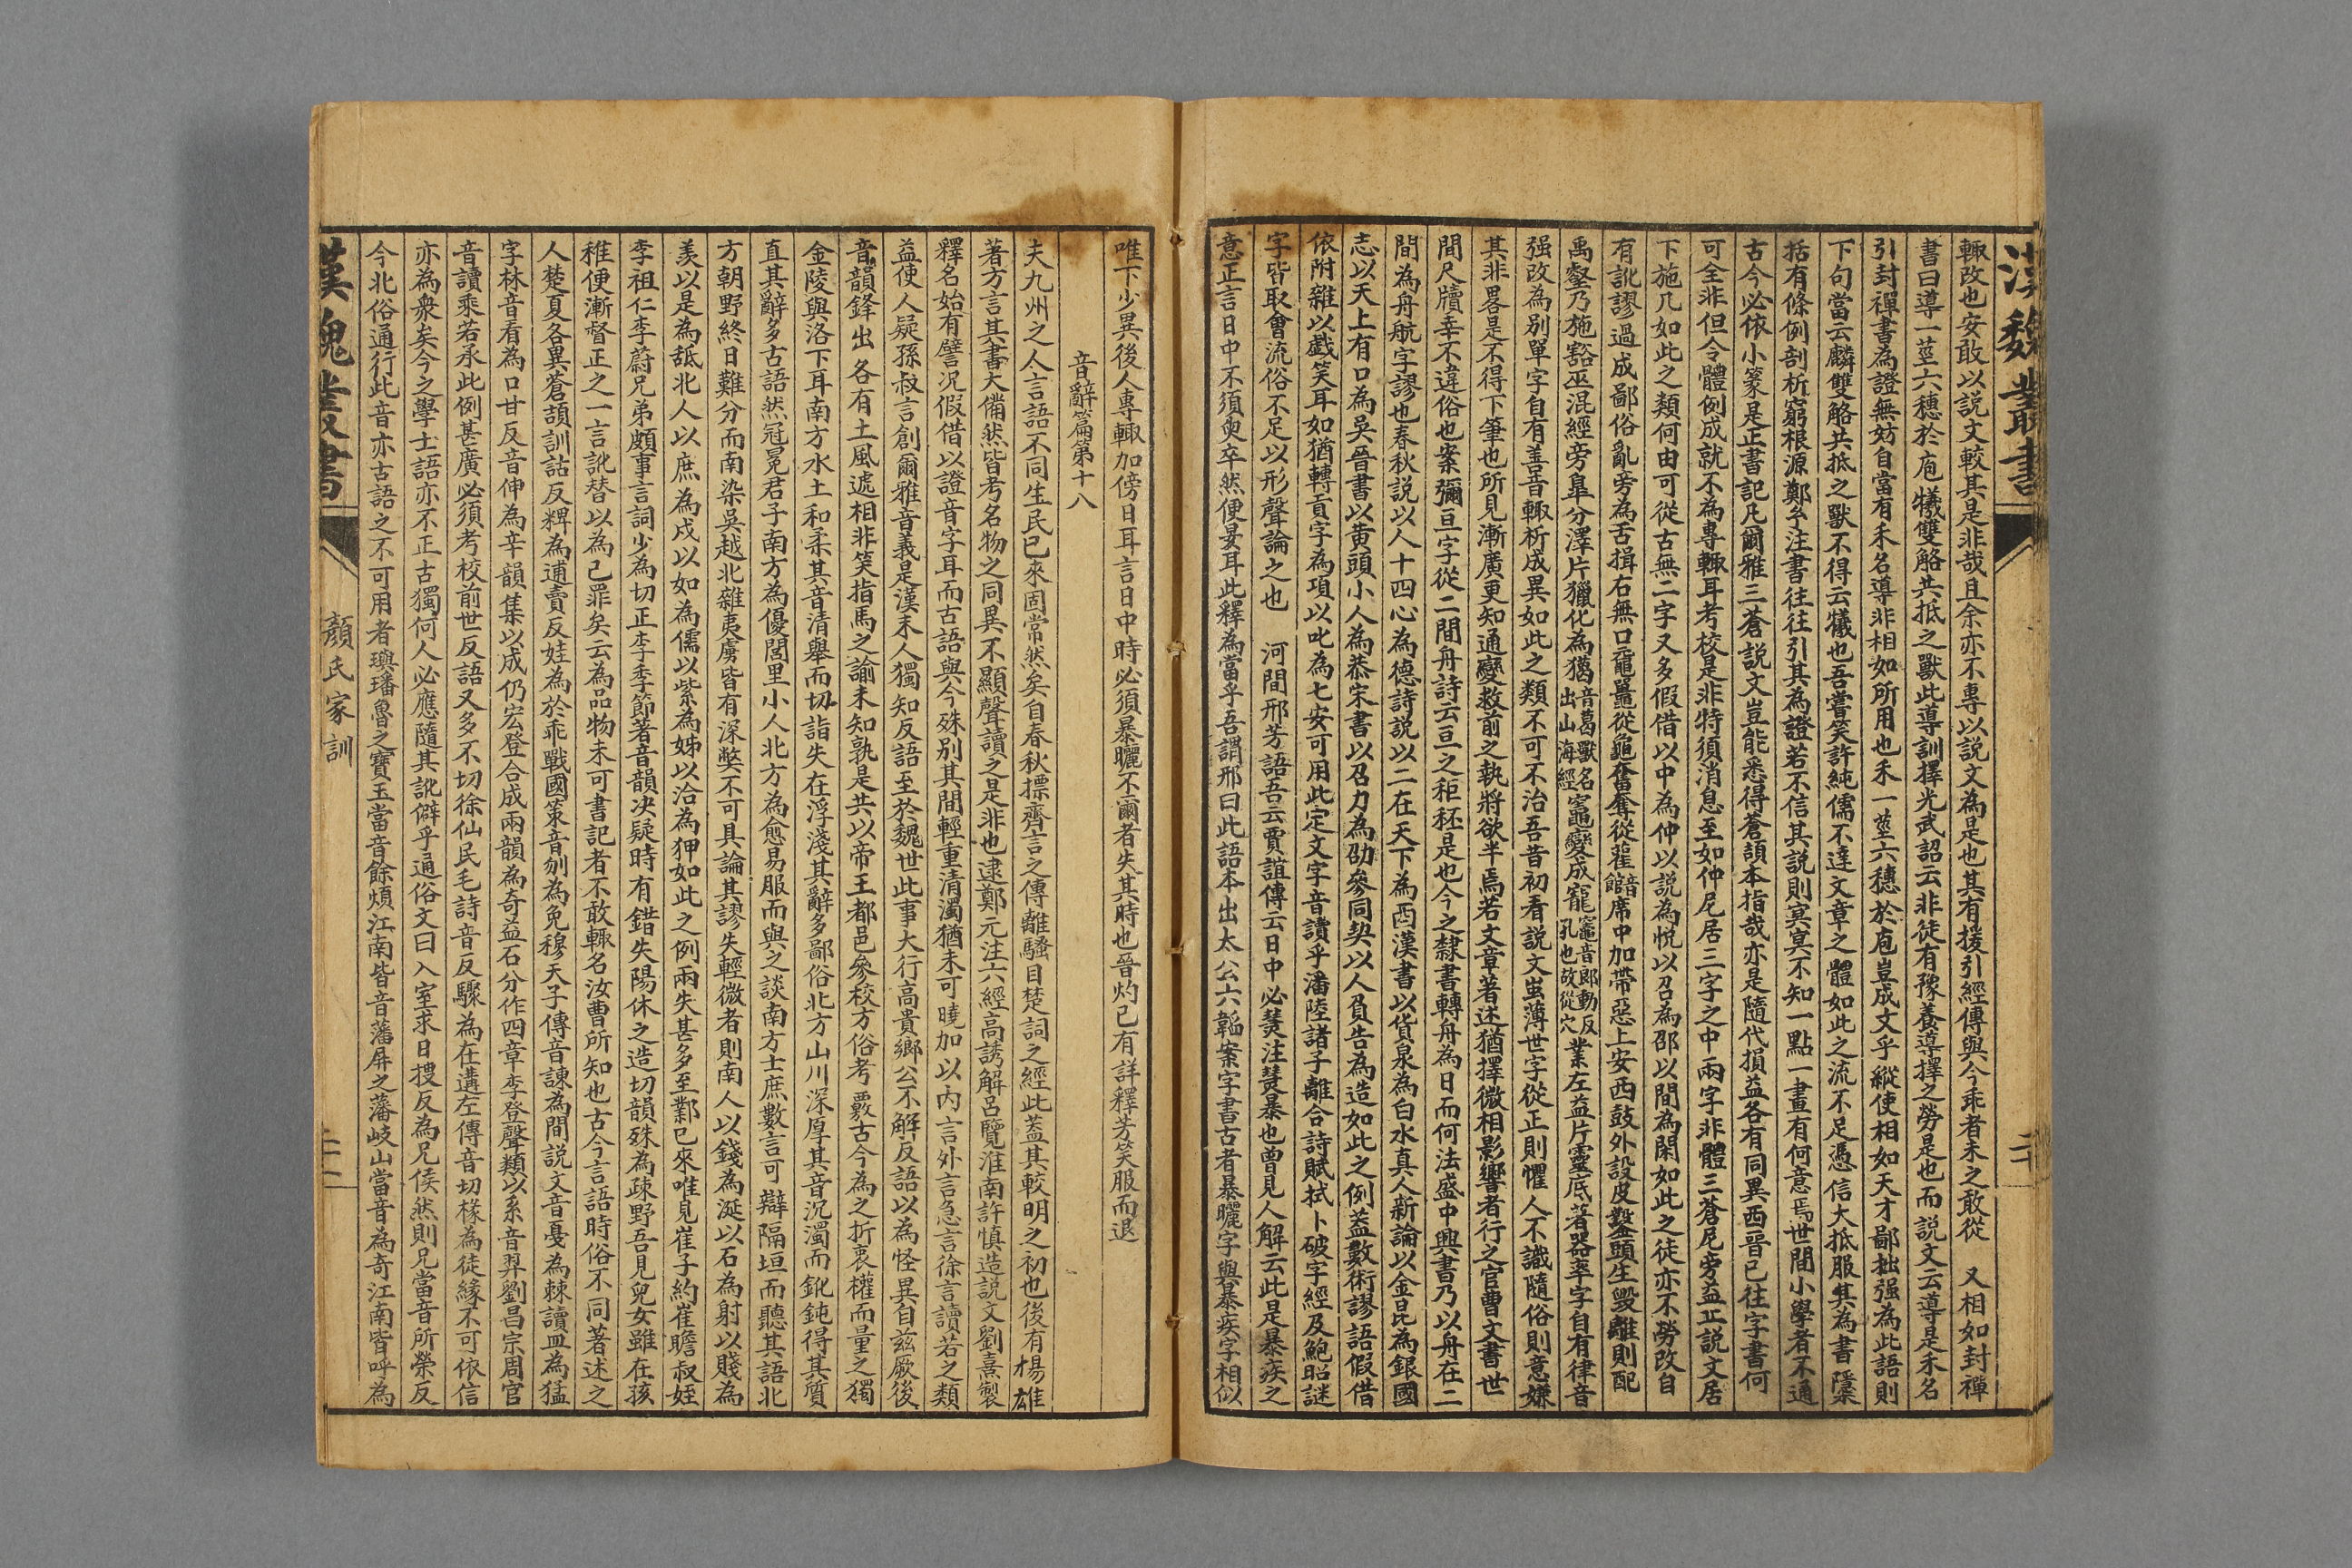 漢魏叢書
二十
輙改也安敢以説文較其是非哉且余亦不專以説文為是也其有援引經傳與今乖者未之敢從 又相如封禪
書曰導一莖六穗於庖犧雙觡共抵之獸此導訓擇光武詔云非徒有豫養導擇之勞是也而説文云導是禾名
引封禪書為證無妨自當有禾名導非相如所用也禾一莖六穗於庖豈成文乎縱使相如天才鄙拙强為此語則
下句當云麟雙觡共抵之獸不得云犧也吾嘗笑許純儒不達文章之體如此之流不足憑信大抵服其為書隱栝
括有條例剖析窮根源鄭𤣥注書往往引其為證若不信其説則冥冥不知一點一畫有何意焉世間小學者不通
古今必依小篆是正書記凡爾雅三蒼説文豈能悉得蒼頡本指哉亦是隨代損益各有同異西晉已往字書何
可全非但令體例成就不為專輙耳考校是非特須消息至如仲尼居三字之中兩字非體三蒼尼旁益丘説文居
下施几如此之類何由可從古無二字又多假借以中為仲以説為悅以召為邵以間為閑如此之徒亦不勞改自
有訛謬過成鄙俗亂旁為舌揖右無口黿鼉從龜奮奪從雚音館席中加帶惡上安西鼓外設皮鑿頭生毁離則配
禹壑乃施豁巫混經旁臯分澤片獵化為獦音葛獸名出山海經寵變成竉竉音郎動反孔也故從穴業左益片靈底著器率字自有律音
强改為别單字自有善音輙析成異如此之類不可不治吾昔初看説文蚩薄世字從正則懼人不識隨俗則意嫌
其非畧是不得下筆也所見漸廣更知通變救前之執將欲半焉若文章著述猶擇微相影響者行之官曹文書世
間尺牘幸不違俗也案彌亘字從二間舟詩云亘之秬秠是也今之隸書轉舟為日而何法盛中興書乃以舟在二
間為舟航字謬也春秋説以人十四心為德詩説以二在天下為酉漢書以貨泉為白水真人新論以金昆為銀國
志以天上有口為吳晉書以黄頭小人為恭宋書以召力為劭參同契以人負告為造如此之例蓋數術謬語假借
依附雜以戲笑耳如猶轉貢字為項以叱為七安可用此定文字音讀乎潘陸諸子離合詩賦拭卜破字經及鮑昭謎
字皆取會流俗不足以形聲論之也 河間邢芳語吾云賈誼傳云日中必熭注熭暴也曾見人解云此是暴疾之
意正言日中不須臾卒然便昃耳此釋為當乎吾謂邢曰此語本出太公六韜案字書古者暴曬字與暴疾字相似
唯下少異後人專輙加傍日耳言日中時必須暴曬不爾者失其時也晉灼已有詳釋芳笑服而退
音辭篇第十八
夫九州之人言語不同生民已來固常然矣自春秋標齊言之傳離騷目楚詞之經此蓋其較明之初也後有楊雄
著方言其書大備然皆考名物之同異不顯聲讀之是非也逮鄭元注六經高誘解呂覽淮南許慎造説文劉熹製
釋名始有譬況假借以證音字耳而古語與今殊别其間輕重清濁猶未可曉加以内言外言急言徐言讀若之類
益使人疑孫叔言創爾雅音義是漢末人獨知反語至於魏世此事大行高貴鄉公不解反語以為怪異自兹厥後
音韻鋒出各有土風遞相非笑指馬之諭未知孰是共以帝王都邑參校方俗考覈古今為之折衷㩁而量之獨
金陵與洛下耳南方水土和柔其音清舉而切詣失在浮淺其辭多鄙俗北方山川深厚其音沉濁而鈋鈍得其質
直其辭多古語然冠冕君子南方為優閭里小人北方為愈易服而與之談南方士庶數言可辯隔垣而聽其語北
方朝野終日難分而南染吳越北雜夷虜皆有深弊不可具論其謬失輕微者則南人以錢為涎以石為射以賤為
羡以是為䑛北人以庶為戍以如為儒以紫為姊以洽為狎如此之例兩失甚多至鄴已來唯見崔子約崔瞻叔姪
李祖仁李蔚兄弟頗事言詞少為切正李季節著音韻决疑時有錯失陽休之造切韻殊為疎野吾見兒女雖在孩
稚便漸督正之一言訛替以為己罪矣云為品物未可書記者不敢輙名汝曹所知也古今言語時俗不同著述之
人楚夏各異蒼頡訓詁反稗為逋賣反娃為於乖戰國策音刎為免穆天子傳音諫為間説文音戞為棘讀皿為猛
字林音看為口甘反音伸為辛韻集以成仍宏登合成兩韻為奇益石分作四章李登聲類以系音羿劉昌宗周官
音讀乘若承此例甚廣必須考校前世反語又多不切徐仙民毛詩音反驟為在遘左傳音切椽為徒緣不可依信
亦為衆矣今之學士語亦不正古獨何人必應隨其訛僻乎通俗文曰入室求曰搜反為兄侯然則兄當音所榮反
今北俗通行此音亦古語之不可用者璵璠魯之寶玉當音餘煩江南皆音藩屏之藩岐山當音為奇江南皆呼為
漢魏叢書
顔氏家訓